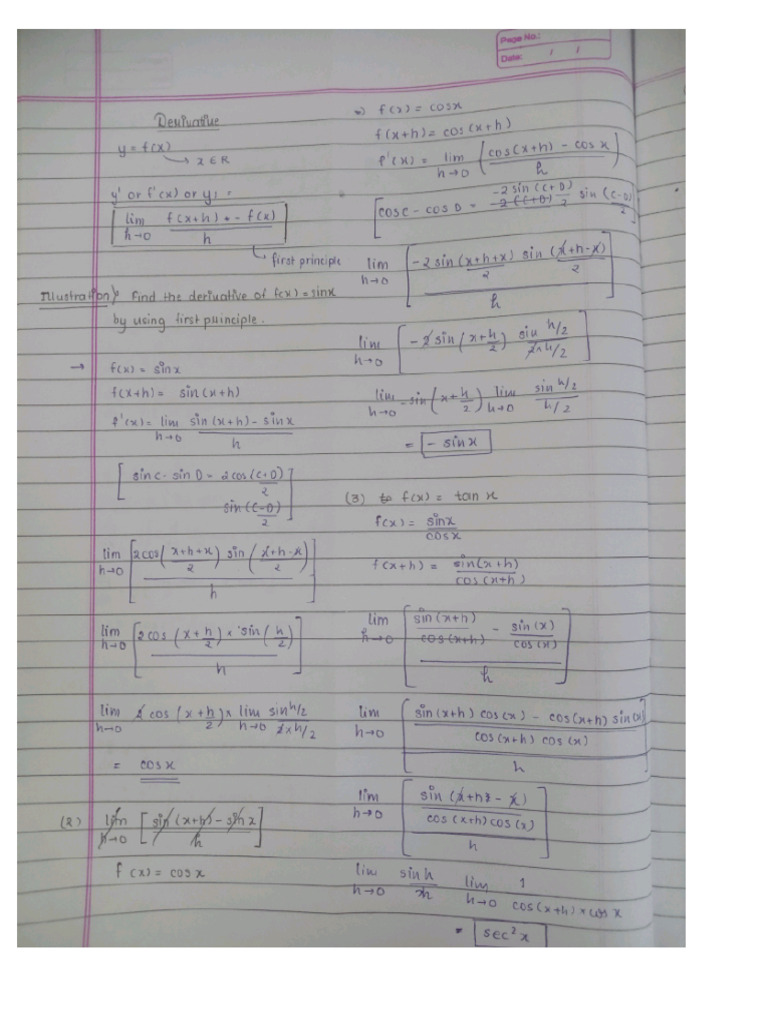 Page No.:
Date: / /
Derivative
y = f(x)
→ x ∈ R
y' or f'(x) or y₁ =
[lim h→0 (f(x+h) - f(x))/h]
↳ first principle
Illustration) Find the derivative of f(x) = sinx
by using first principle.
→ f(x) = sinx
f(x+h) = sin(x+h)
f'(x) = lim h→0 (sin(x+h) - sinx)/h
[sinC - sinD = 2cos(C+D)/2
sin(C-D)/2]
lim h→0 [2cos((x+h+x)/2) sin((x+h-x)/2) / h]
lim h→0 [2cos(x+h/2) × sin(h/2) / h]
lim h→0 2 cos(x+h/2) × lim h→0 (sin h/2)/(2×h/2)
= cosx
(2) lim h→0 [(sin(x+h) - sinx)/h]
f(x) = cosx
→) f(x) = cosx
f(x+h) = cos(x+h)
f'(x) = lim h→0 ((cos(x+h) - cosx)/h)
[cosC - cosD = -2 sin(C+D)/2 sin(C-D)/2]
lim h→0 [-2sin(x+h+x)/2 sin(x+h-x)/2 / h]
lim h→0 [-2sin(x+h/2) (sin h/2)/(2×h/2)]
lim h→0 -sin(x+h/2) lim h→0 (sin h/2)/(h/2)
= -sinx
(3) f(x) = tan x
f(x) = sinx/cosx
f(x+h) = sin(x+h)/cos(x+h)
lim h→0 [(sin(x+h)/cos(x+h) - sin(x)/cos(x))/h]
lim h→0 [(sin(x+h) cos(x) - cos(x+h) sin(x))/(cos(x+h) cos(x)) / h]
lim h→0 [sin(x+h-x)/(cos(x+h)cos(x)) / h]
lim h→0 sin h/h lim h→0 1/(cos(x+h)×cosx)
= sec²x